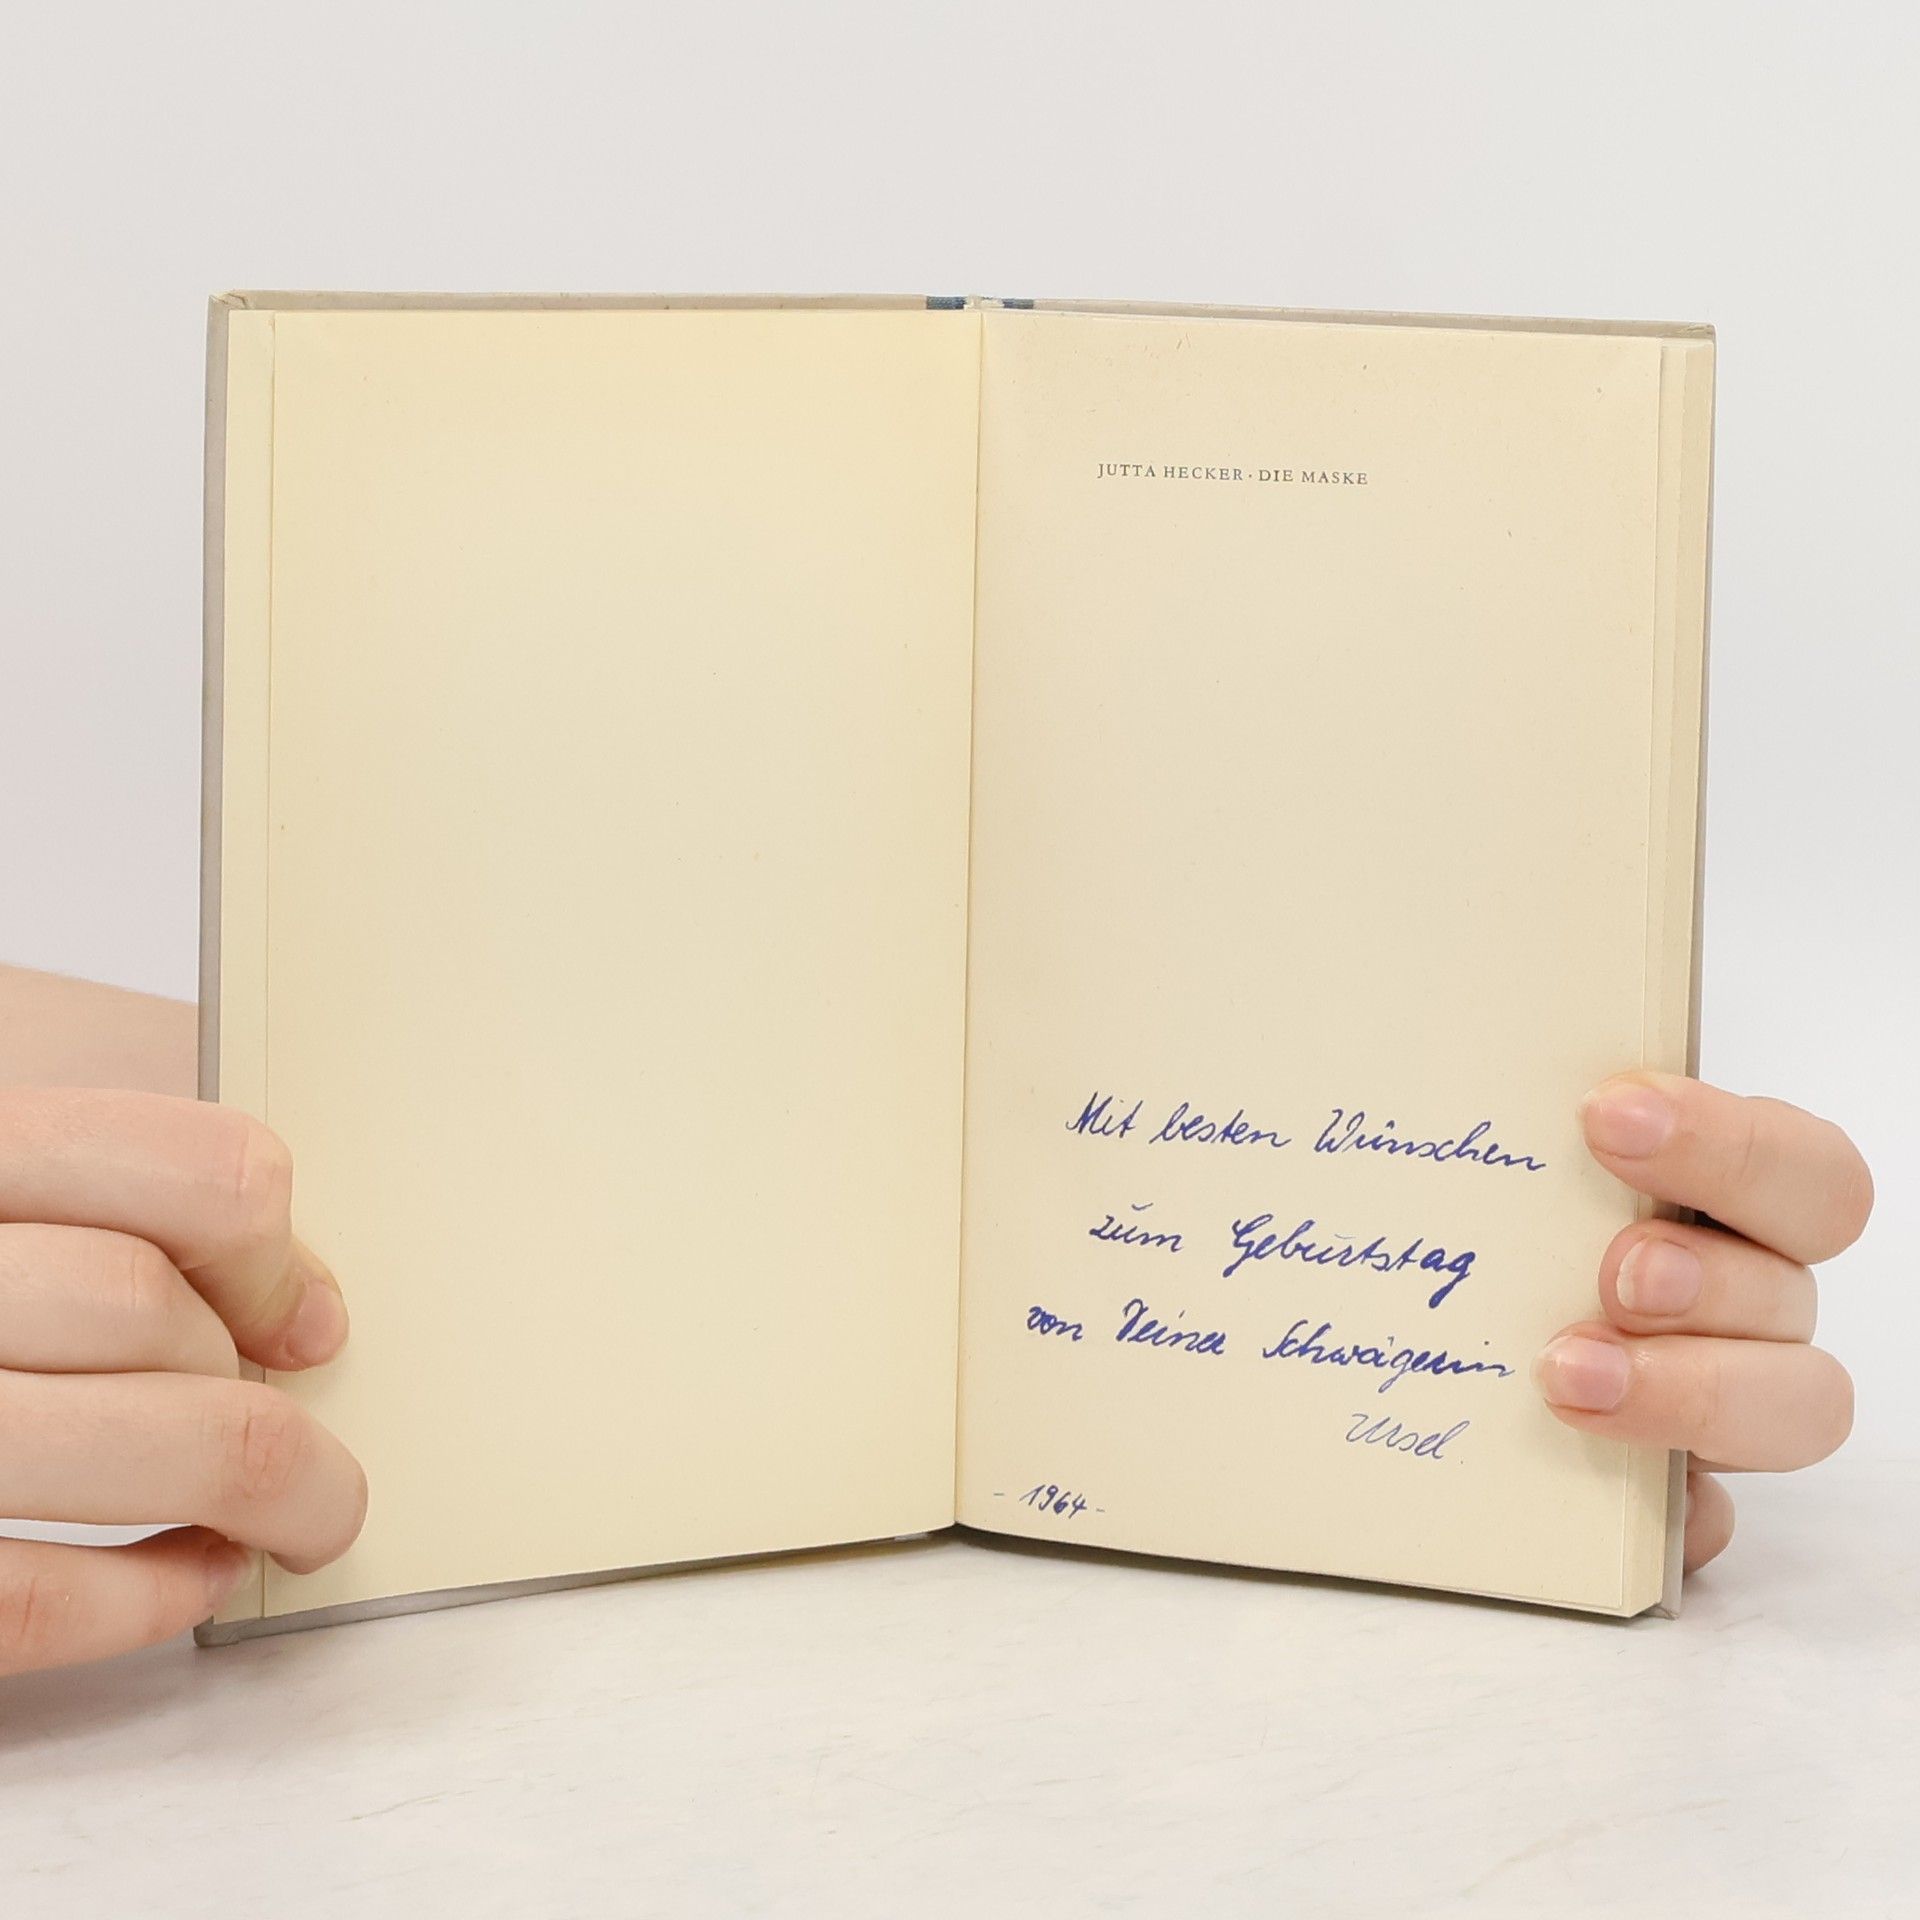 JUTTA HECKER · DIE MASKE
Mit besten Wünschen
zum Geburtstag
von Deiner Schwägerin
Ursel.
- 1964 -